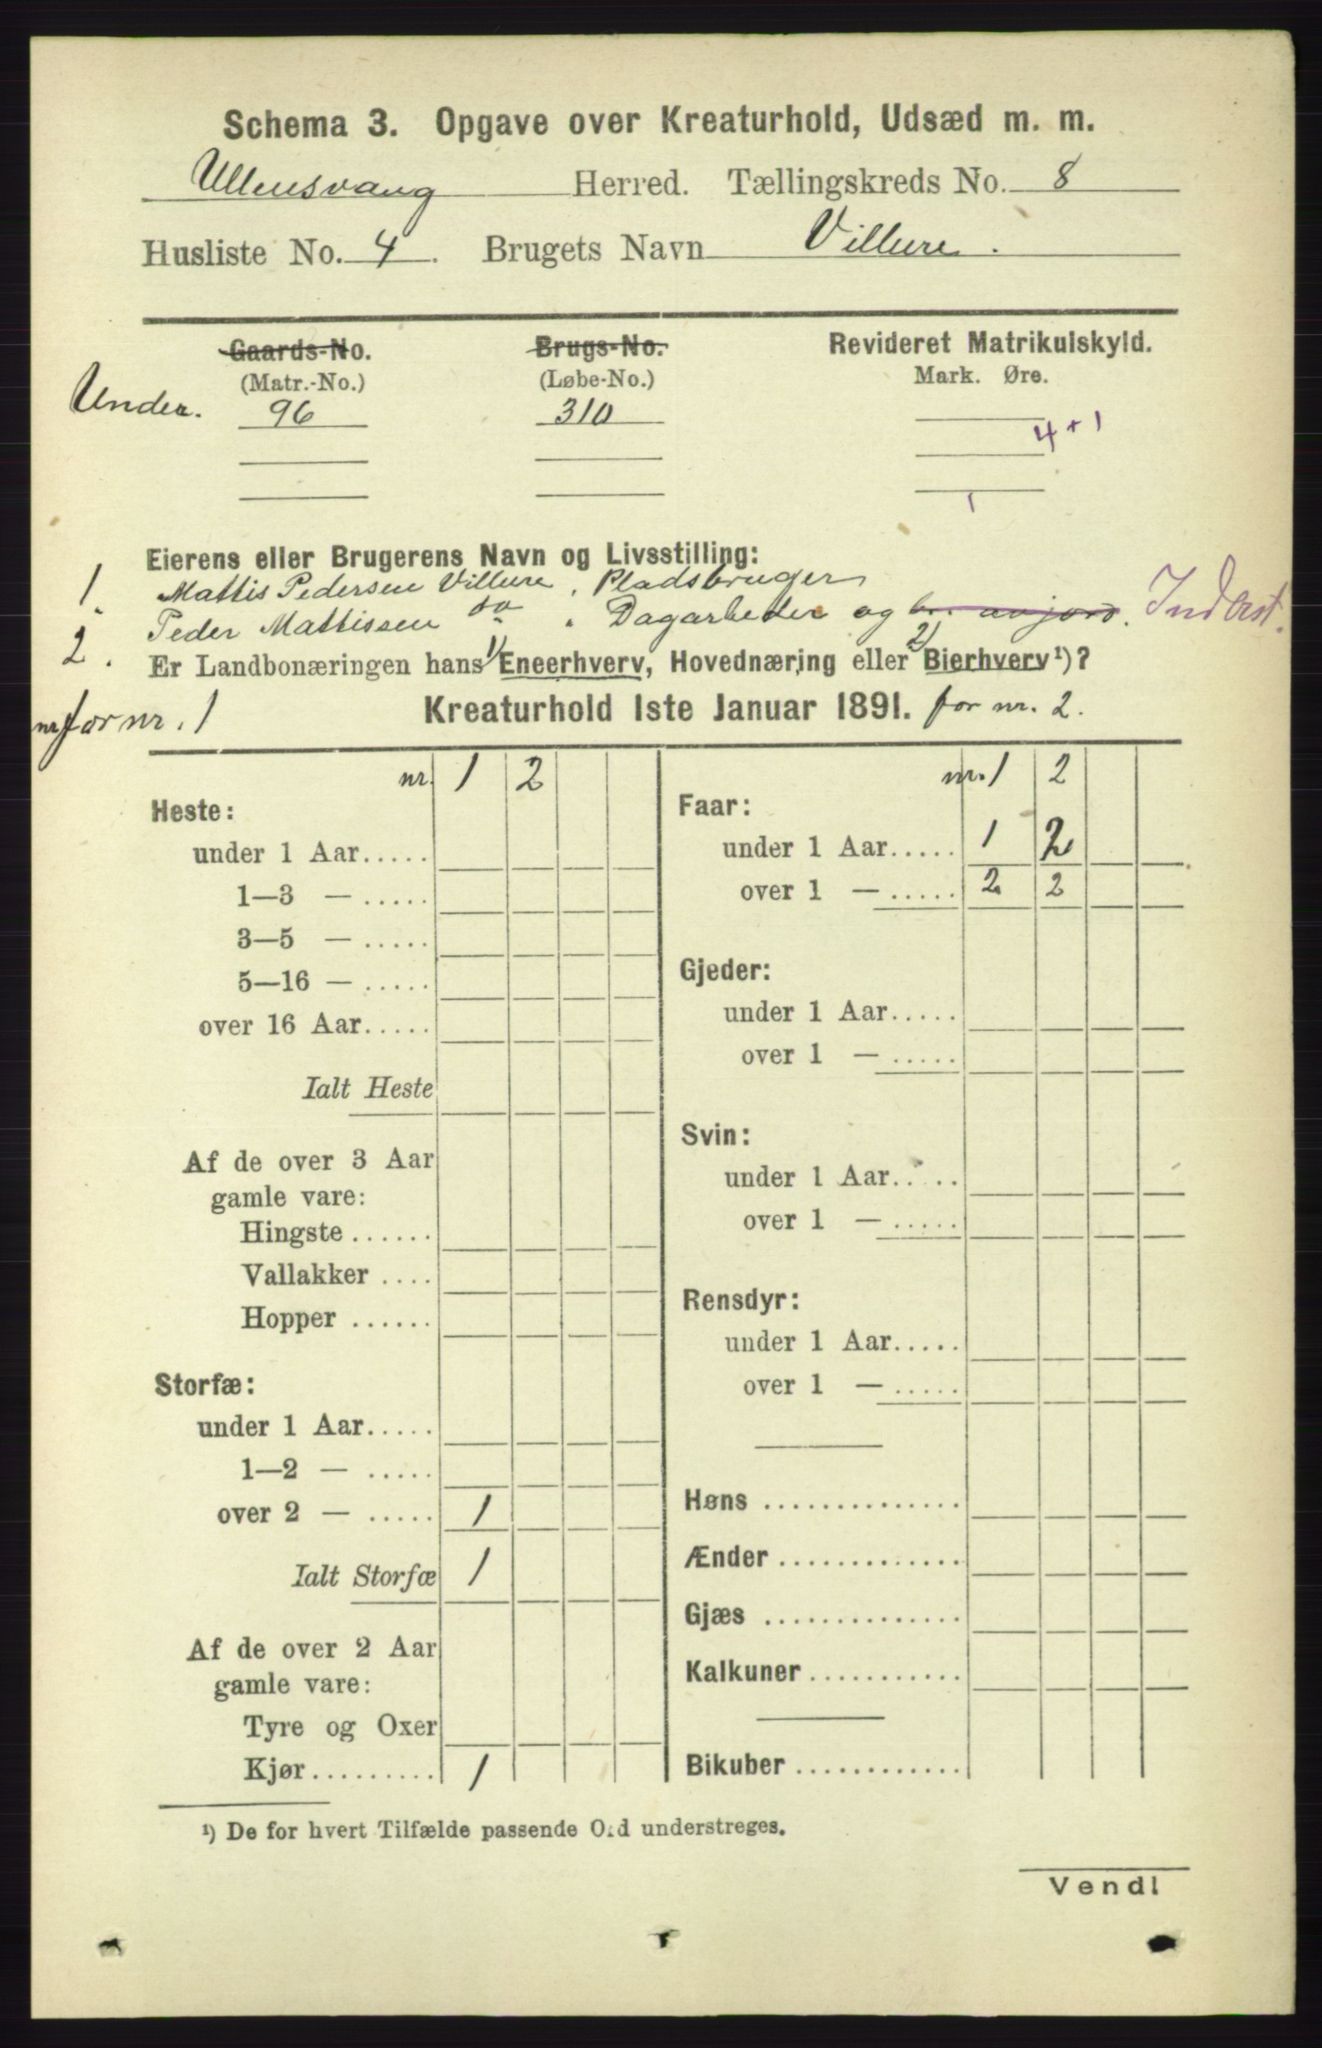 Schema 3. Opgave over Kreaturhold, Udsæd m. m.
Ullensvang Herred. Tællingskreds No. 8
Husliste No. 4. Brugets Navn Villure.
Gaards-No. Brugs-No. Revideret Matrikulskyld.
(Matr.-No.) (Løbe-No.) Mark. Øre.
Under. 96 310
4 + 1
1
Eierens eller Brugerens Navn og Livsstilling:
1. Mattis Pedersen Villure, Pladsbruger
2. Peder Mattissen do, Dagarbeider og avjord. Inderst.
Er Landbonæringen hans 1) Eneerhverv, Hovednæring eller 2) Bierhverv ¹)?
for nr. 1 Kreaturhold 1ste Januar 1891. for nr. 2.
nr. 1 2
Heste:
under 1 Aar.....
1—3 — .....
3—5 — .....
5—16 — .....
over 16 Aar.....
Ialt Heste
Af de over 3 Aar
gamle vare:
Hingste ......
Vallakker ....
Hopper ......
Storfæ:
under 1 Aar.....
1—2 — .....
over 2 — ..... 1
Ialt Storfæ 1
Af de over 2 Aar
gamle vare:
Tyre og Oxer
Kjør......... 1
nr. 1 2
Faar:
under 1 Aar..... 1 2
over 1 — ..... 2 2
Gjeder:
under 1 Aar.....
over 1 — .....
Svin:
under 1 Aar.....
over 1 — .....
Rensdyr:
under 1 Aar.....
over 1 — .....
Høns ..............
Ænder .............
Gjæs ..............
Kalkuner...........
Bikuber ............
¹) De for hvert Tilfælde passende Ord understreges.
Vend!